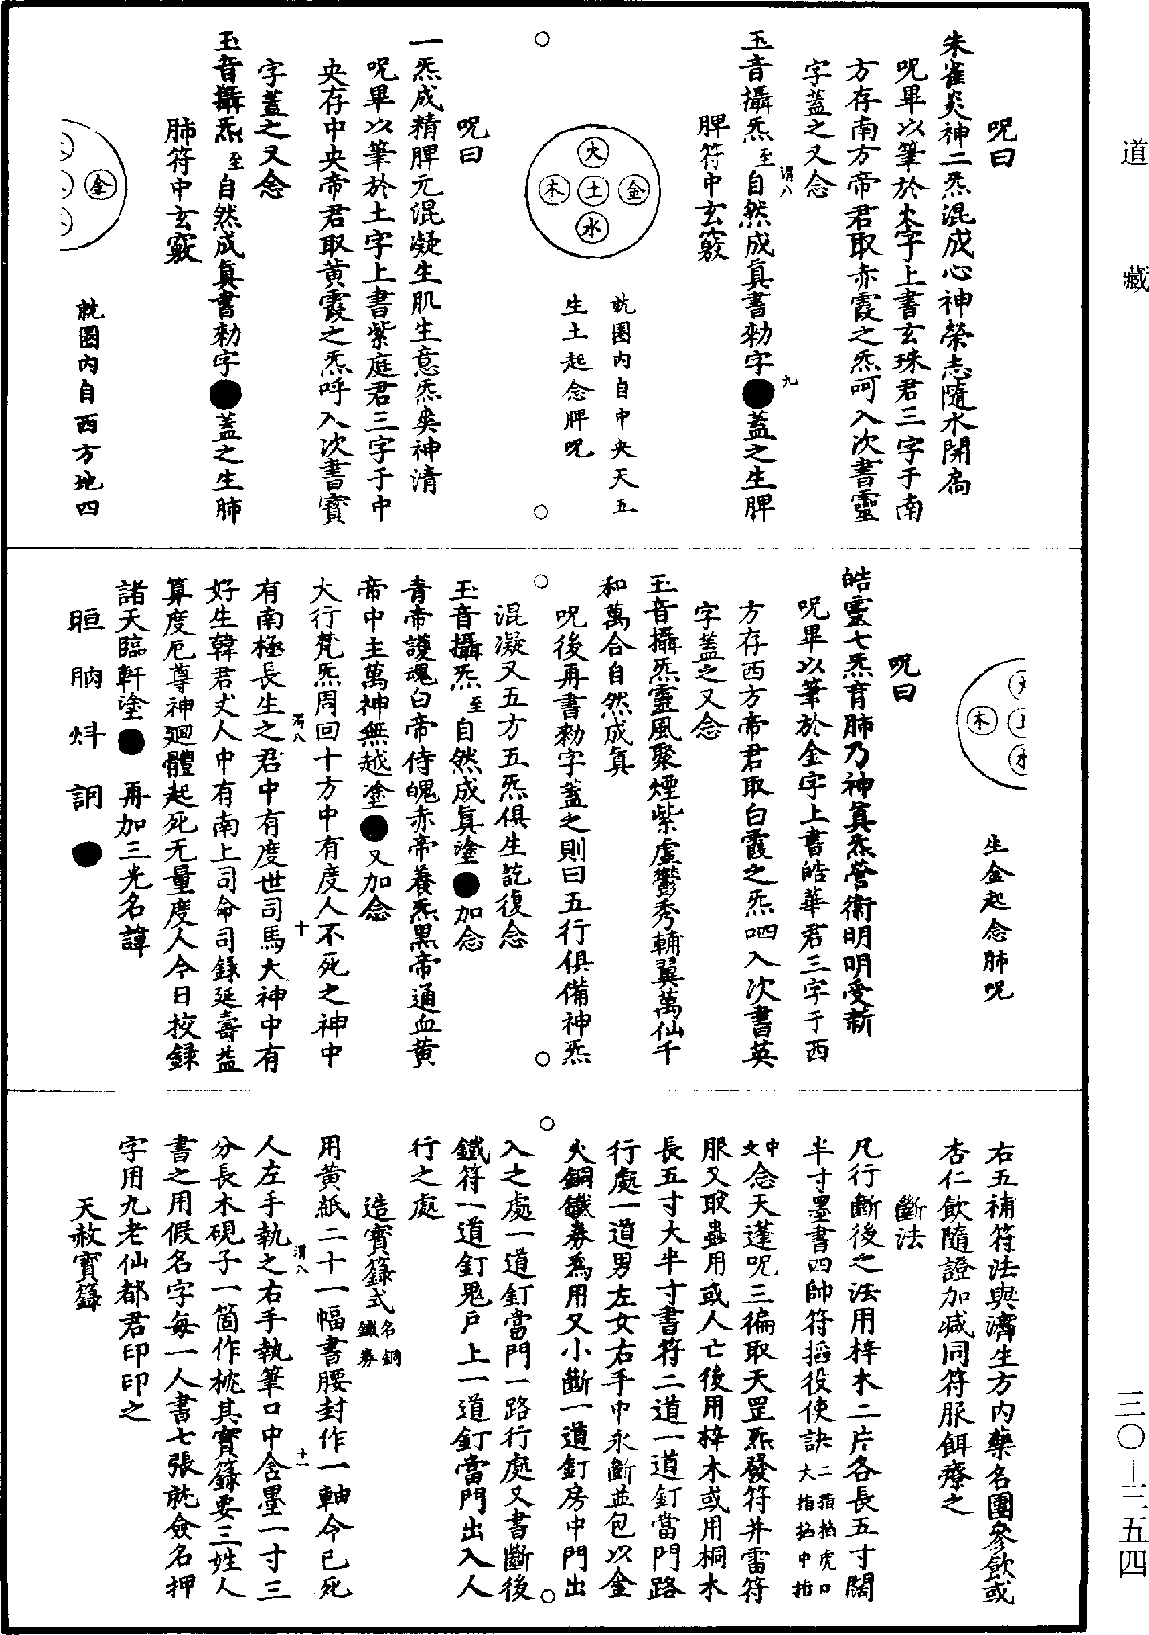 道藏
三〇—三五四
呪曰
朱雀炎神二炁混成心神榮志隨水開扃
呪畢以筆於火字上書玄珠君三字于南
方存南方帝君取赤霞之炁呵入次書靈
字蓋之又念
玉音攝炁至自然成真書勑字●蓋之生脾
謂八
九
脾符中玄竅
火
木土金
水
就圈內自中央天五
生土起念脾呪
呪曰
一炁成精脾元混凝生肌生意炁奐神清
呪畢以筆於土字上書紫庭君三字于中
央存中央帝君取黃霞之炁呼入次書寶
字蓋之又念
玉音攝炁至自然成真書勑字●蓋之生肺
肺符中玄竅
金
就圈內自西方地四
木
生金起念肺呪
呪曰
皓靈七炁育肺乃神真炁營衛明明受新
呪畢以筆於金字上書皓華君三字于西
方存西方帝君取白霞之炁呬入次書英
字蓋之又念
玉音攝炁靈風聚煙紫虛鬱秀輔翼萬仙千
和萬合自然成真
呪後再書勑字蓋之則曰五行俱備神炁
混凝又五方五炁俱生訖復念
玉音攝炁至自然成真塗●加念
青帝護魂白帝侍魄赤帝養炁黑帝通血黃
帝中主萬神無越塗●又加念
大行梵炁周回十方中有度人不死之神中
謂八
十
有南極長生之君中有度世司馬大神中有
好生韓君丈人中有南上司命司錄延壽益
算度厄尊神廻體起死无量度人今日校錄
諸天臨軒塗●再加三光名諱
晅朒炓詷●
右五補符法與濟生方內藥名團參飲或
杏仁飲隨證加減同符服餌療之
斷法
凡行斷後之法用梓木二片各長五寸闊
半寸墨書四帥符掐役使訣二指掐虎口大指掐中指
中文念天蓬呪三徧取天罡炁發符并雷符
服又取蟲用或人亡後用梓木或用桐木
長五寸大半寸書符二道一道釘當門路
行處一道男左女右手中永斷並包以金
火銅鐵券為用又小斷一道釘房中門出
入之處一道釘當門一路行處又書斷後
鐵符一道釘鬼戶上一道釘當門出入人
行之處
造寶籙式名銅鐵券
用黃紙二十一幅書腰封作一軸令已死
謂八
十一
人左手執之右手執筆口中含墨一寸三
分長木硯子一箇作桃其寶籙要三姓人
書之用假名字每一人書七張就僉名押
字用九老仙都君印印之
天赦寶籙